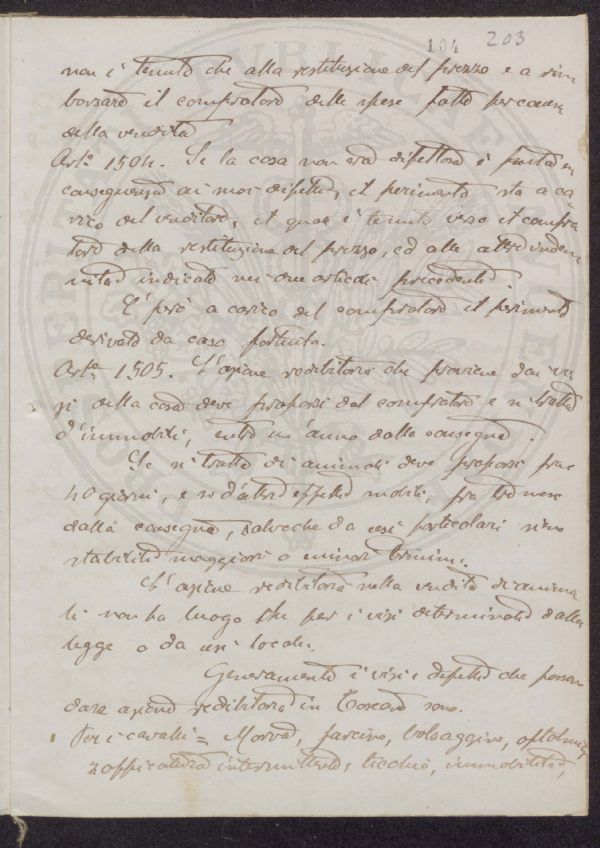 104 203
non è tenuto che alla restituzione del prezzo e a rim
borzare il compratore delle spese fatte per causa
della vendita
Art.º 1504. Se la cosa non era difettosa è perita in
conseguenza ai suoi difetti, il perimento sta a ca
rico del venditore, il quale è tenuto verso il compra
tore della restituzione del prezzo, ed alle altre inden
nità indicate nei due articoli precedenti.
E' però a carico del compratore il perimento
derivato da caso fortuito.
Art.º 1505. L'azione redibitoria che proviene dai vi
zi della cosa deve proporsi dal compratore e si tratta
d'immobili, entro un'anno dalla consegna.
Se si tratta di animali deve proporsi fra
40 giorni, e se d'altri effetti mobili, fra tre mesi
dalla consegna, salvoche da usi particolari sieno
stabiliti maggiori o minori termini.
L'azione redibitoria nella vendita di anima
li non ha luogo che per i vizi determinati dalla
legge o da usi locali.
Generamente i vizi e difetti che possan
dare azione redibitoria in Toscana sono.
Per i cavalli = Morva, farcino, bolsaggine, oftalmia
zoppicatura intermittente, ticchio, immobilità,
PROSPERITATI PUBLICAE